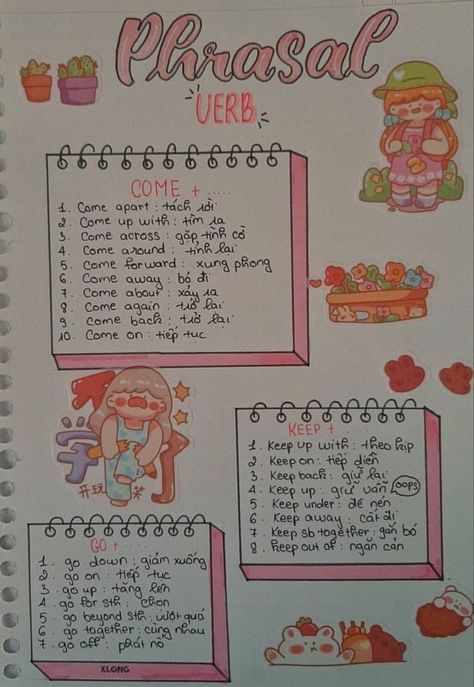 Phrasal
VERB
COME + .....
1. Come apart : tách rời
2. Come up with : tìm ra
3. Come across : gặp tình cờ
4. Come around : tỉnh lại
5. Come forward : xung phong
6. Come away : bỏ đi
7. Come about : xảy ra
8. Come again : trở lại
9. Come back : trở lại
10. Come on : tiếp tục
KEEP + .....
1. Keep up with : theo kịp
2. Keep on : tiếp diễn
3. Keep back : giữ lại
4. Keep up : giữ vẫn
OOPS
5. Keep under : đè nén
6. Keep away : cất đi
7. Keep sb together : gắn bó
8. Keep out of : ngăn cản
字
开玩
GO + .....
1. go down : giảm xuống
2. go on : tiếp tục
3. go up : tăng lên
4. go for sth : chọn
5. go beyond sth : vượt quá
6. go together : cùng nhau
7. go off : phát nổ
XLONG